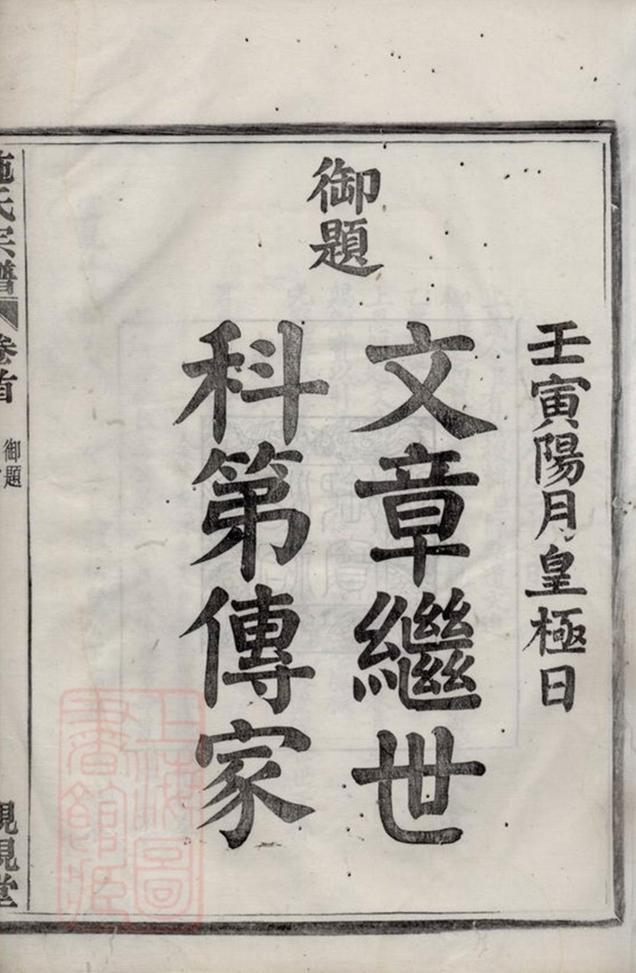 壬寅陽月皇極日
御題
文章繼世
科第傳家
施氏宗譜
卷首
御題
上海圖書館藏